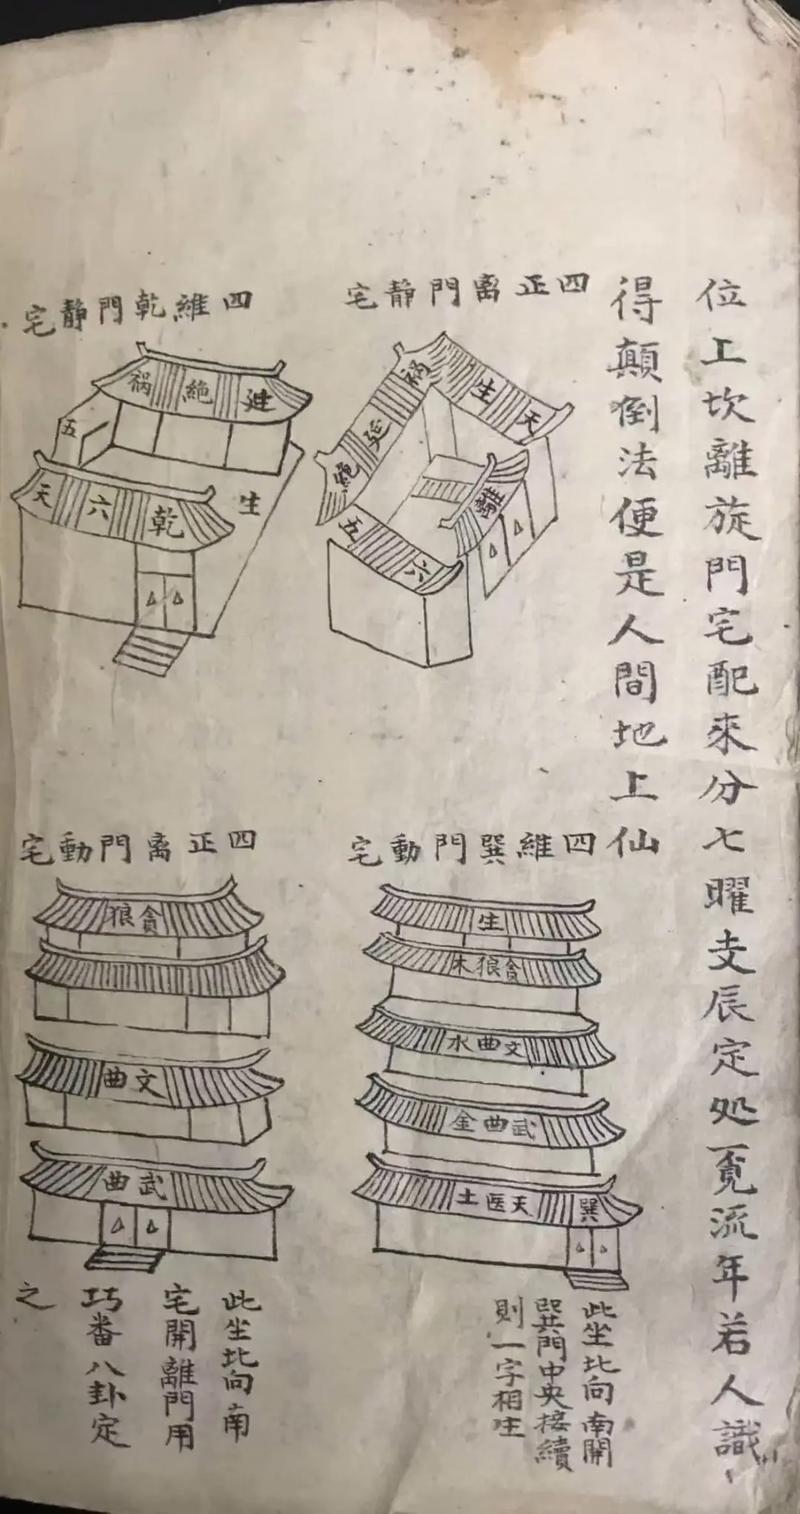 位上坎離旋門宅配來分七曜支辰定処覓流年若人識
得顛倒法便是人間地上仙
四正离門靜宅
天
生
祸
延
絶
五
六
離
四維乾門靜宅
延
絶
祸
五
生
乾
六
天
四維巽門動宅
生
貪狼木
文曲水
武曲金
巽
天医土
此坐北向南開
巽門中央接續
則一字相生
四正离門動宅
貪狼
文曲
武曲
此坐北向南
宅開離門用
巧番八卦定
之